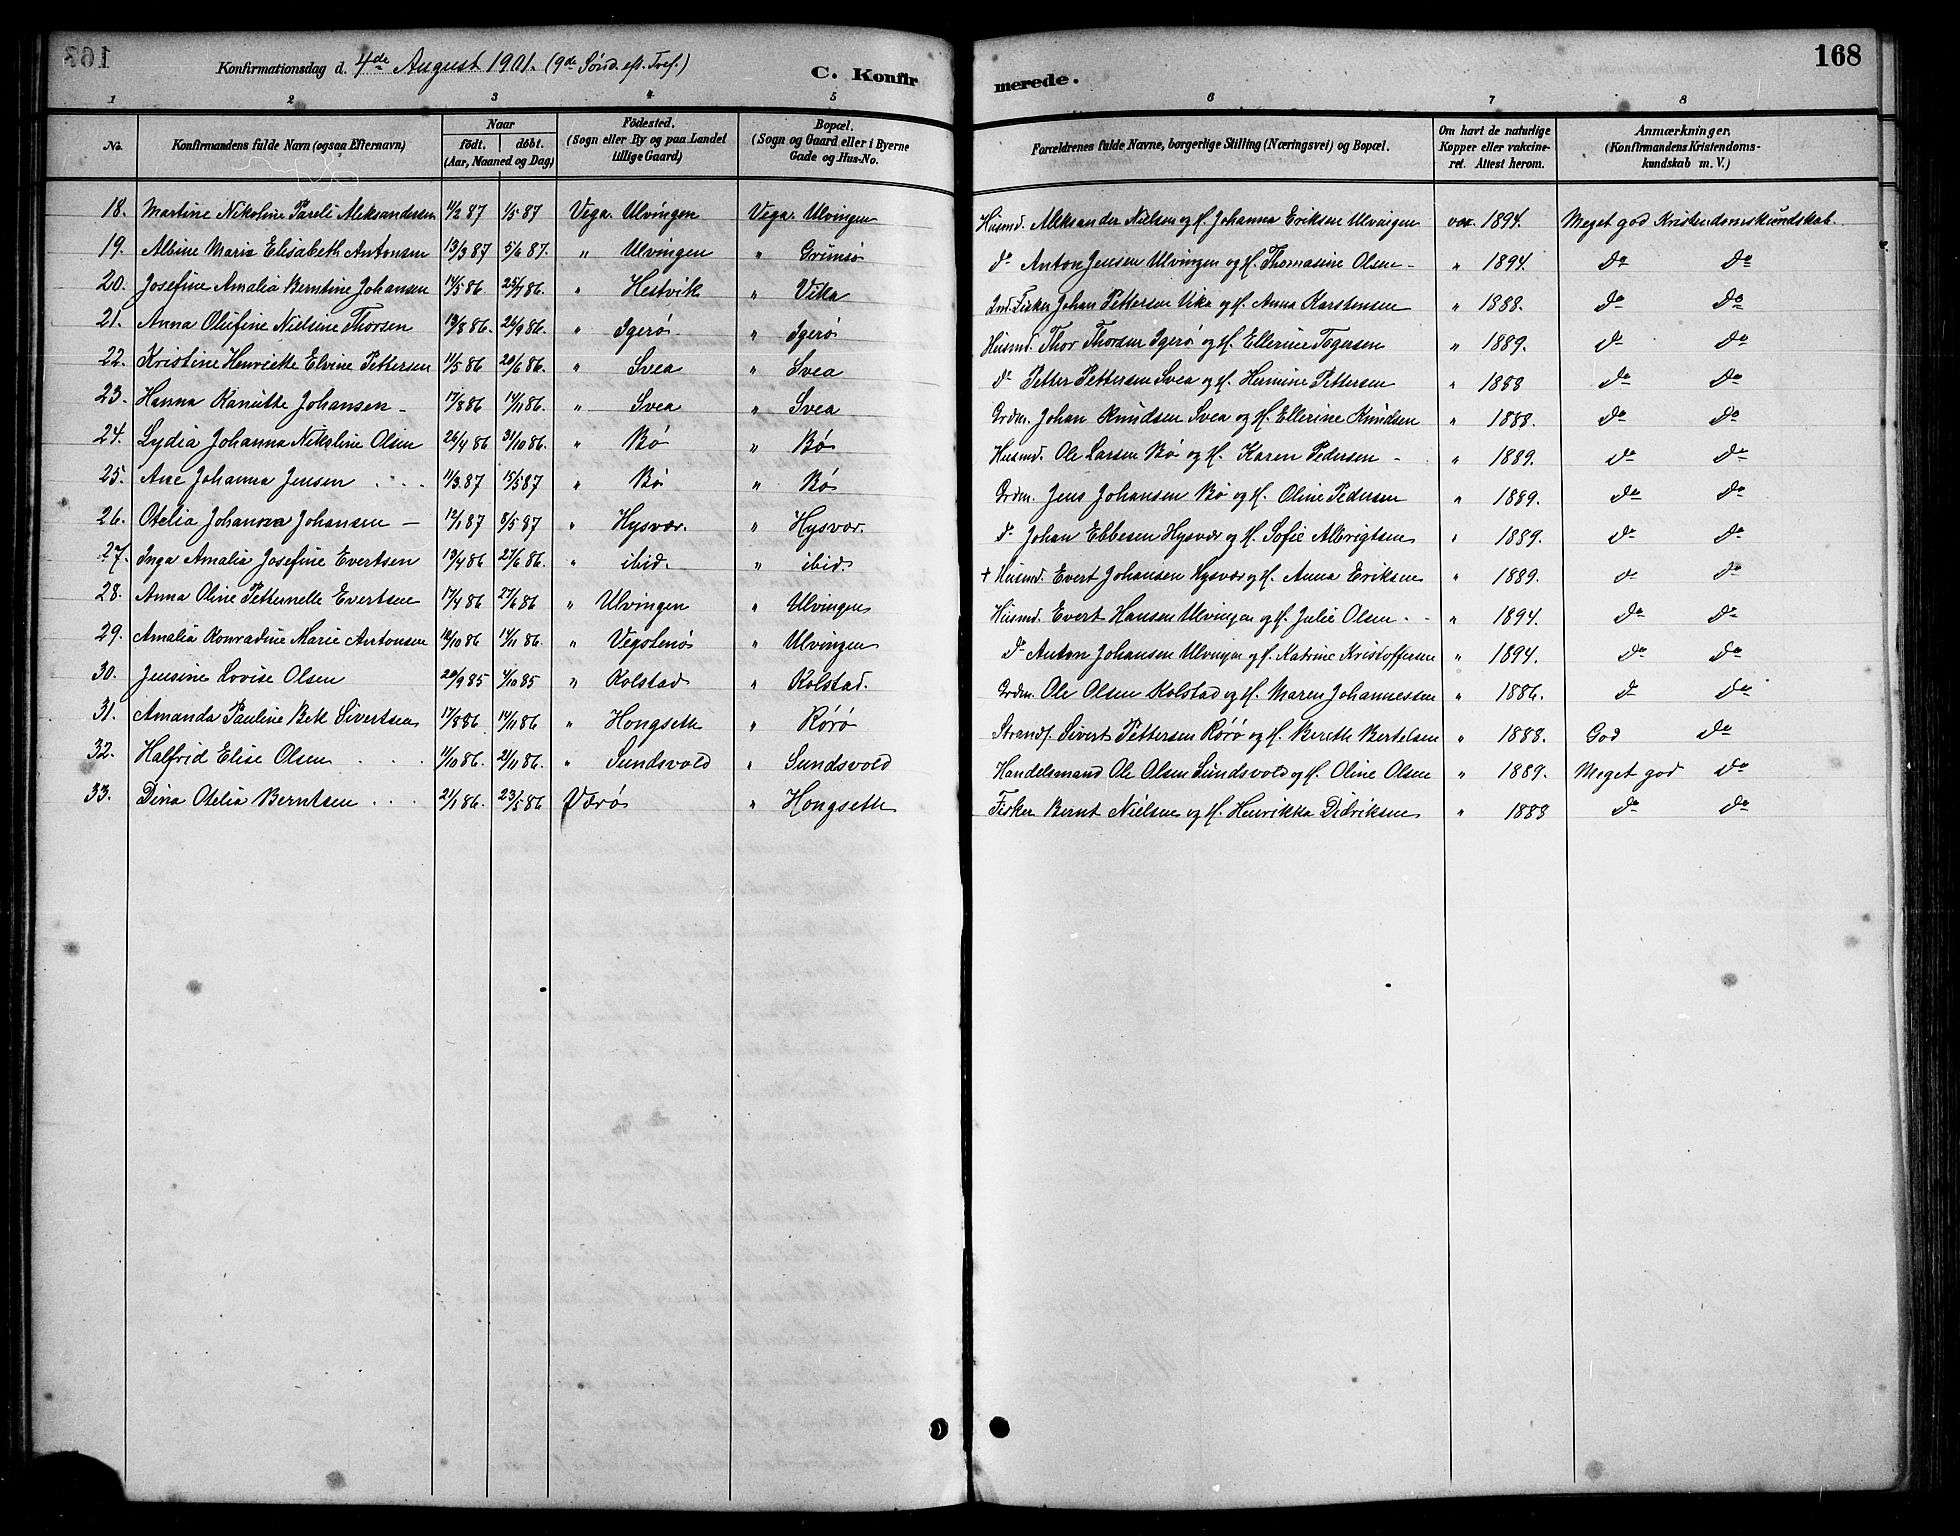 Konfirmationsdag d. 4de August 1901. (9de Sönd. eft. Tref.)
C. Konfirmerede.
168
1 2 3 4 5 6 7 8
No. Konfirmandens fulde Navn (ogsaa Efternavn) Naar födt. döbt. (Aar, Maaned og Dag) Födested. (Sogn eller By og paa Landet tillige Gaard) Bopæl. (Sogn og Gaard eller i Byerne Gade og Hus-No. Forældrenes fulde Navne, borgerlige Stilling (Næringsvei) og Bopæl. Om havt de naturlige Kopper eller vakcineret. Attest herom. Anmærkninger. (Konfirmandens Kristendomskundskab m. V.)
18. Martine Nikoline Pareli Aleksandersen 11/2 87 1/5 87 Vega Ulvingen Vega Ulvingen Husmd. Aleksander Nielsen og H. Johanna Eriksen Ulvingen vac. 1894. Meget god Kristendomskundskab
19. Albine Maria Elisabeth Antonsen 13/3 87 5/6 87. " Ulvingen " Grimsö do Anton Jensen Ulvingen og H. Thomasine Olsen - " 1894. do do
20. Josefine Amalia Berntine Johansen 14/5 86 25/7 86. " Hestvik " Vika Ind. Fisker Johan Pettersen Vika og H. Anna Karstensen " 1888. do do
21. Anna Olufine Nielsine Thorsen 13/8 86. 26/9 86. " Igerö " Igerö Husmd. Thor Thorsen Igerö og H. Ellerine Togersen " 1889. do do
22. Kristine Henriette Elvine Pettersen 11/5 86 20/6 86. " Svea " Svea do Petter Pettersen Svea og H. Hermine Pettersen " 1888 do do
23. Hanna Kanutte Johansen - 17/8 86 14/11 86. " Svea " Svea Grdm. Johan Knudsen Svea og H. Ellerine Knudsen " 1888. do do
24. Lydia Johanna Nikoline Olsen 26/4 86 31/10 86. " Bö " Bö Husmd. Ole Larsen Bö og H. Karen Pedersen - " 1889. do do
25. Ane Johanna Jensen 11/3 87 15/5 87 " Bö " Bö Grdm. Jens Johansen Bö og H. Oline Pedersen " 1889. do do
26. Otelia Johanna Johansen - 12/1 87 8/5 87 " Hysvær. " Hysvær. do Johan Ebbesen Hysvær og H. Sofie Albrigtsen " 1889. do do
27. Inga Amalia Josefine Evertsen 13/4 86 27/6 86. " ibid. " ibid. + Husmd. Evert Johansen Hysvær og H. Anna Eriksen " 1889. do do
28. Anna Oline Petternelle Evertsen 17/4 86 27/6 86 " Ulvingen " Ulvingen Husmd. Evert Hansen Ulvingen og H. Julie Olsen - - " 1894. do do
29. Amalia Konradine Marie Antonsen 12/10 86 14/11 86. " Vegstenö " Ulvingen do Anton Johansen Ulvingen og H. Katrine Kristoffersen " 1894. do do
30. Jensine Lovise Olsen 20/9 85 4/10 85 " Kolstad " Kolstad. Grdm. Ole Olsen Kolstad og H. Maren Johannessen " 1886. do do
31. Amanda Pauline Bek Sivertsen 17/8 86. 14/11 86. " Hongseth " Rörö Strands. Sivert Pettersen Rörö og H. Bereth Bertelsen " 1888. God do
32. Halfrid Elise Olsen 11/10 86. 21/11 86. " Sundsvold " Sundsvold Handelsmand Ole Olsen Sundsvold og H. Oline Olsen " 1889. Meget god do
33. Dina Otelia Berntsen 21/1 86. 23/5 86 Værö " Hongseth Fisker Bernt Nielsen og H. Henrikka Didriksen " 1888 do do